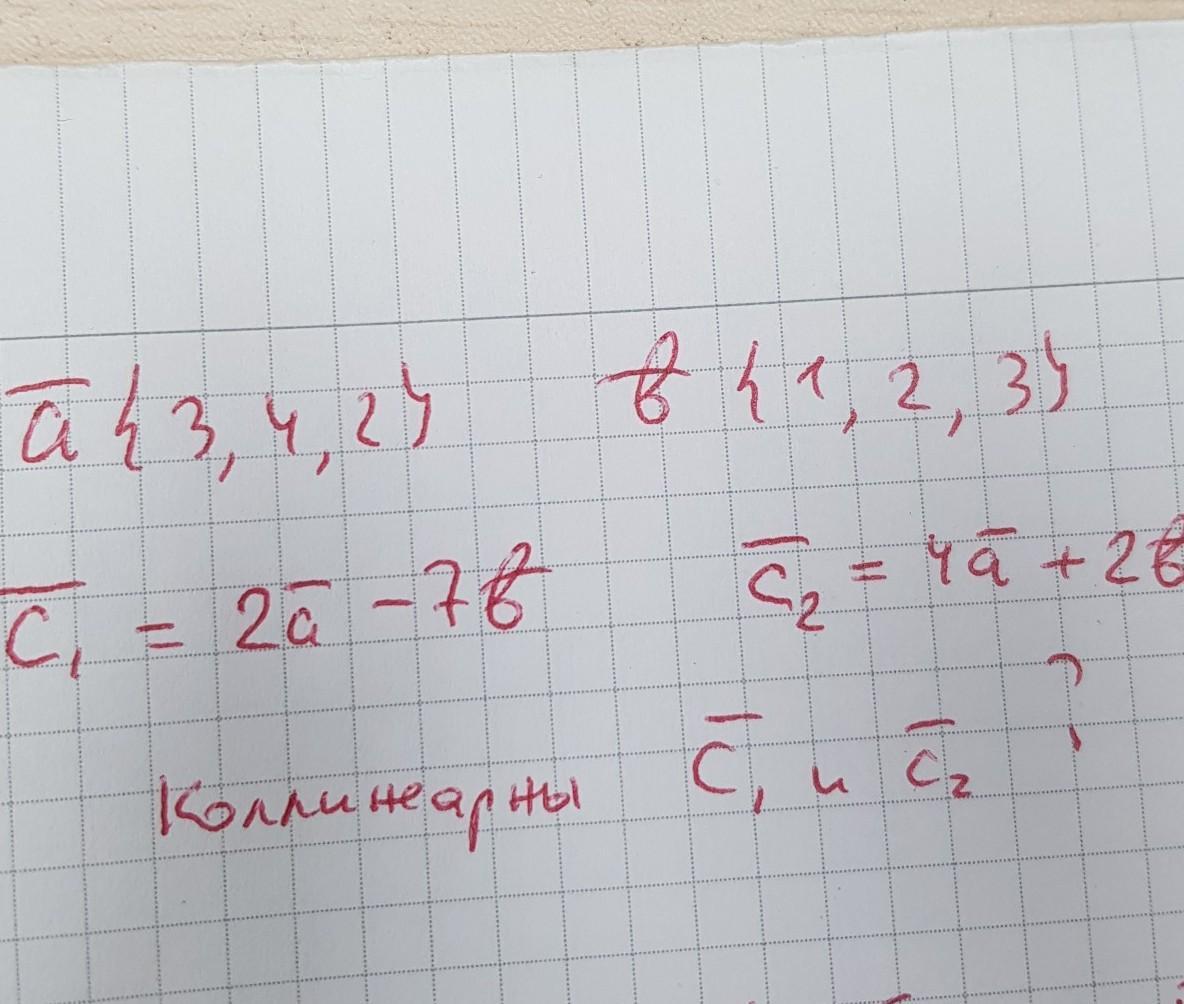 a̅ {3, 4, 2} b̅ {1, 2, 3}
c̅₁ = 2a̅ - 7b̅ c̅₂ = 4a̅ + 2b̅
Коллинеарны c̅₁ и c̅₂ ?